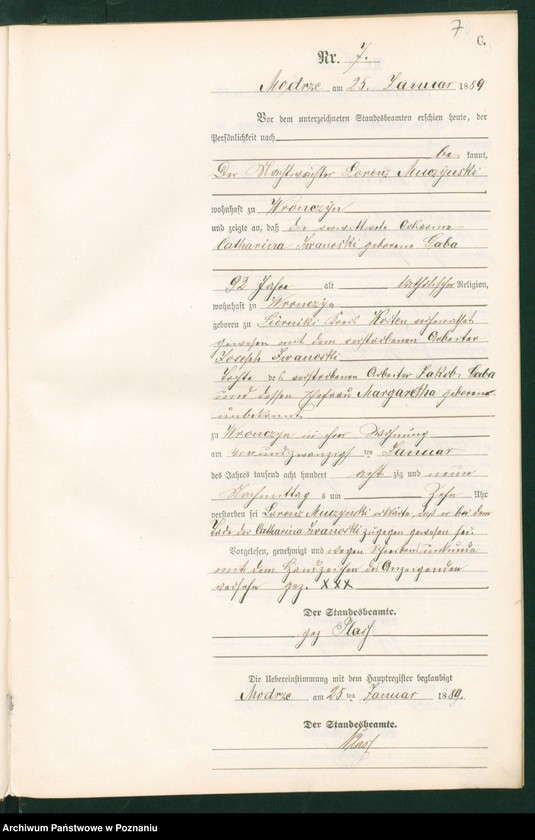 7
C.
Nr. 7.
Modrze am 25. Januar 1889
Vor dem unterzeichneten Standesbeamten erschien heute, der
Persönlichkeit nach
be kannt,
Der Nachtwächter Lorenz Muczynski
wohnhaft zu Wronczyn
und zeigte an, daß die verwittwete Arbeiterin
Catharina Iwanoski geborene Gaba
92 Jahre alt katholischer Religion,
wohnhaft zu Wronczyn
geboren zu Kreis Kosten verheirathet
gewesen mit dem verstorbenen Arbeiter
Joseph Iwanoski
Tochter des verstorbenen Arbeiter Jakob Gaba
und dessen Ehefrau Margaretha geborene
unbekannt
zu Wronczyn in ihrer Wohnung
am vierundzwanzigsten ten Januar
des Jahres tausend acht hundert acht zig und neun
Nachmittag s um Zehn Uhr
verstorben sei Lorenz Muczynski erklärte, daß er bei dem
Tode der Catharina Iwanoski zugegen gewesen sei.
Vorgelesen, genehmigt und wegen Schreibensunkunde
mit dem Handzeichen des Anzeigenden
versehn gez. XXX
Der Standesbeamte.
gez
Die Uebereinstimmung mit dem Hauptregister beglaubigt
Modrze am 25 ten Januar 1889.
Der Standesbeamte.
Archiwum Państwowe w Poznaniu